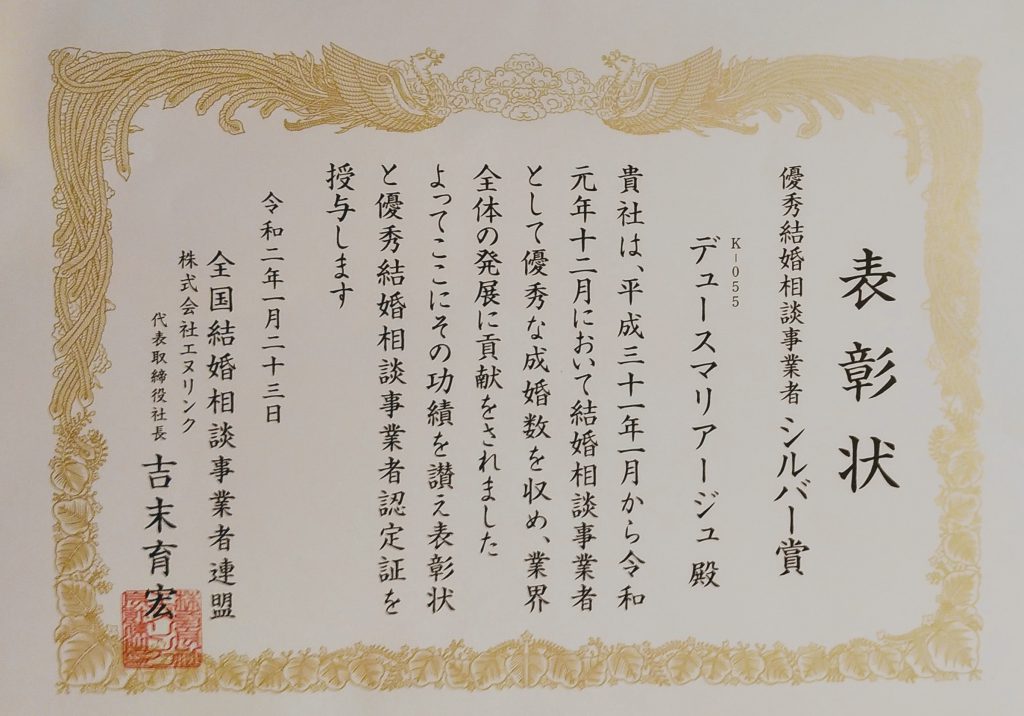 表彰状
優秀結婚相談事業者 シルバー賞
K-055
デュースマリアージュ 殿
貴社は、平成三十一年一月から令和
元年十二月において結婚相談事業者
として優秀な成婚数を収め、業界
全体の発展に貢献をされました
よってここにその功績を讃え表彰状
と優秀結婚相談事業者認定証を
授与します
令和二年一月二十三日
全国結婚相談事業者連盟
株式会社エヌリンク
代表取締役社長 吉末育宏